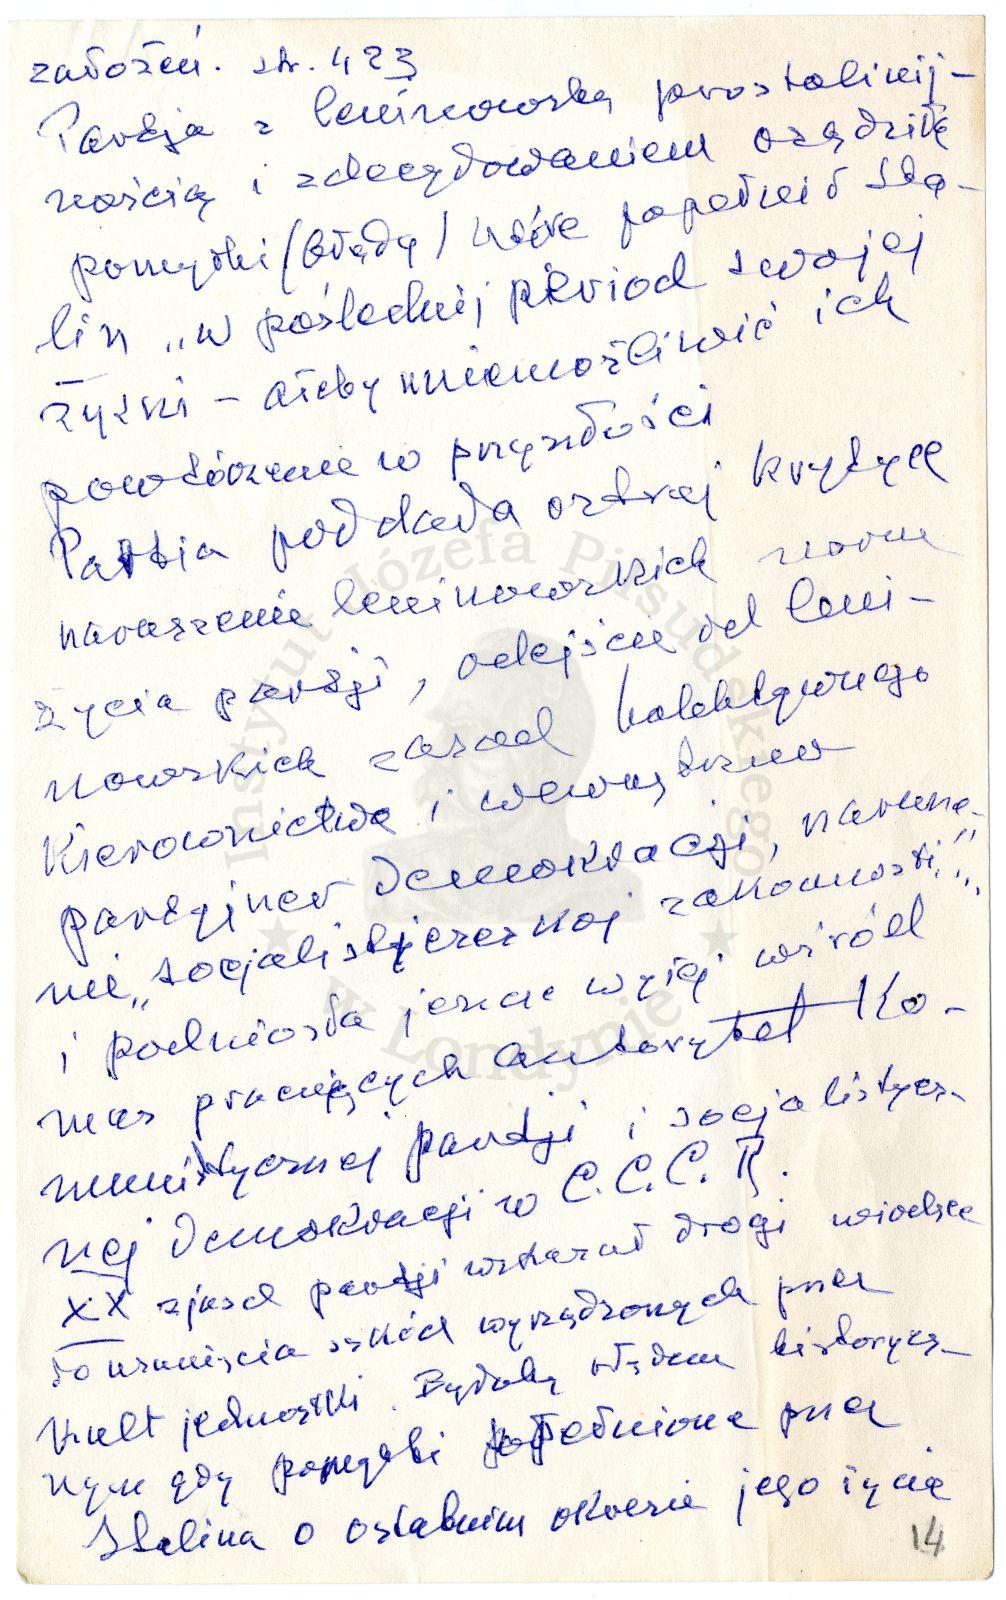 założeń. str. 423
Partja z leninowską prostolinij-
nością i zdecydowaniem osądziła
pomyłki (błędy) które popełnił Sta-
lin „w poślednij pieriod swojej
żyzni – ażeby uniemożliwić ich
powtórzenie w przyszłości
Partia poddała ostrej krytyce
naruszenie leninowskich norm
życia partji, odejście od leni-
nowskich zasad kolektywnego
kierownictwa i wewnątrzno
partyjnej demokracji, narusze-
nie „socjalistyczesznoj zakonnosti”
i podniosła jeszcze wyżej wśród
mas pracujących autorytet Ko-
munistycznej partji i socjalistycz-
nej demokracji w C.C.C.R.
XX zjazd partji wskazał drogi wiodące
do usunięcia szkód wyrządzonych przez
kult jednostki. Byłoby błędem historycz-
nym gdy pomyłki popełnione przez
Stalina o ostatnim okresie jego życia
14
Instytut Józefa Piłsudskiego
w Londynie